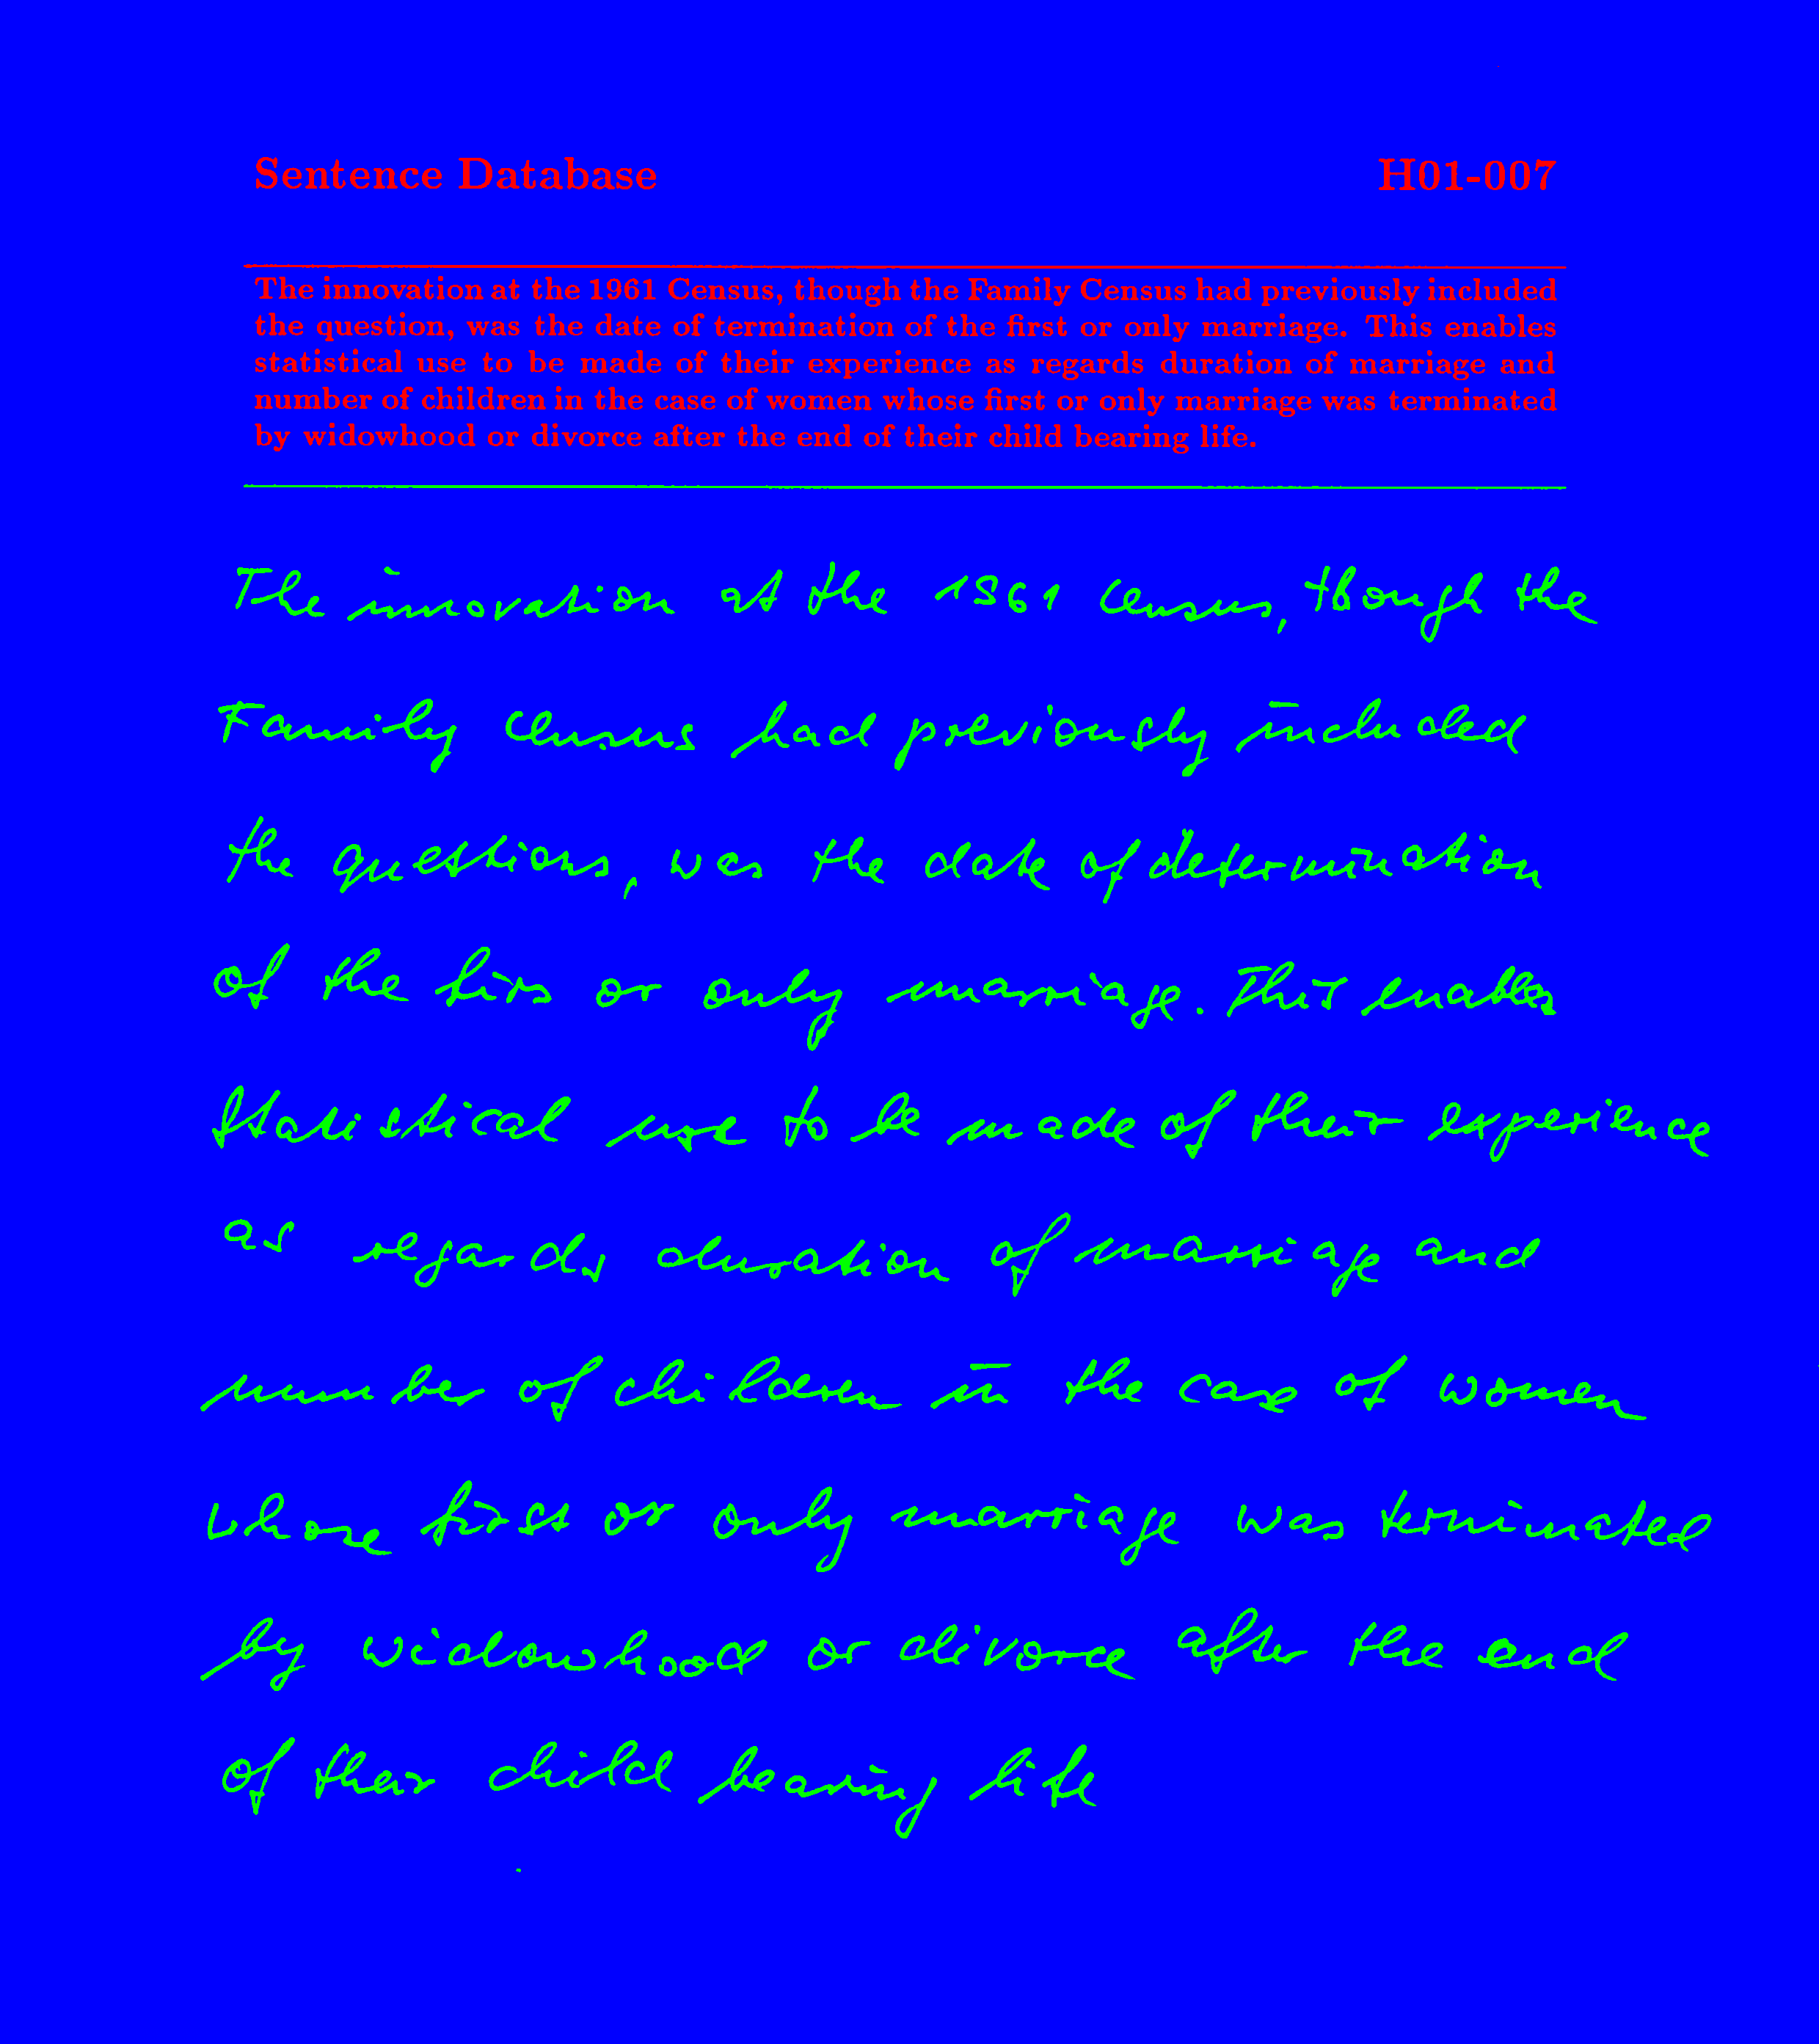 Sentence Database H01-007
The innovation at the 1961 Census, though the Family Census had previously included
the question, was the date of termination of the first or only marriage. This enables
statistical use to be made of their experience as regards duration of marriage and
number of children in the case of women whose first or only marriage was terminated
by widowhood or divorce after the end of their child bearing life.
The innovation at the 1961 Census, though the
Family Census had previously included
the questions, was the date of determination
of the firs or only marriage. This enables
Statistical use to be made of their experience
as regards duration of marriage and
number of children in the case of women
whose first or only marriage was terminated
by widowhood or divorce after the end
of their child bearing life